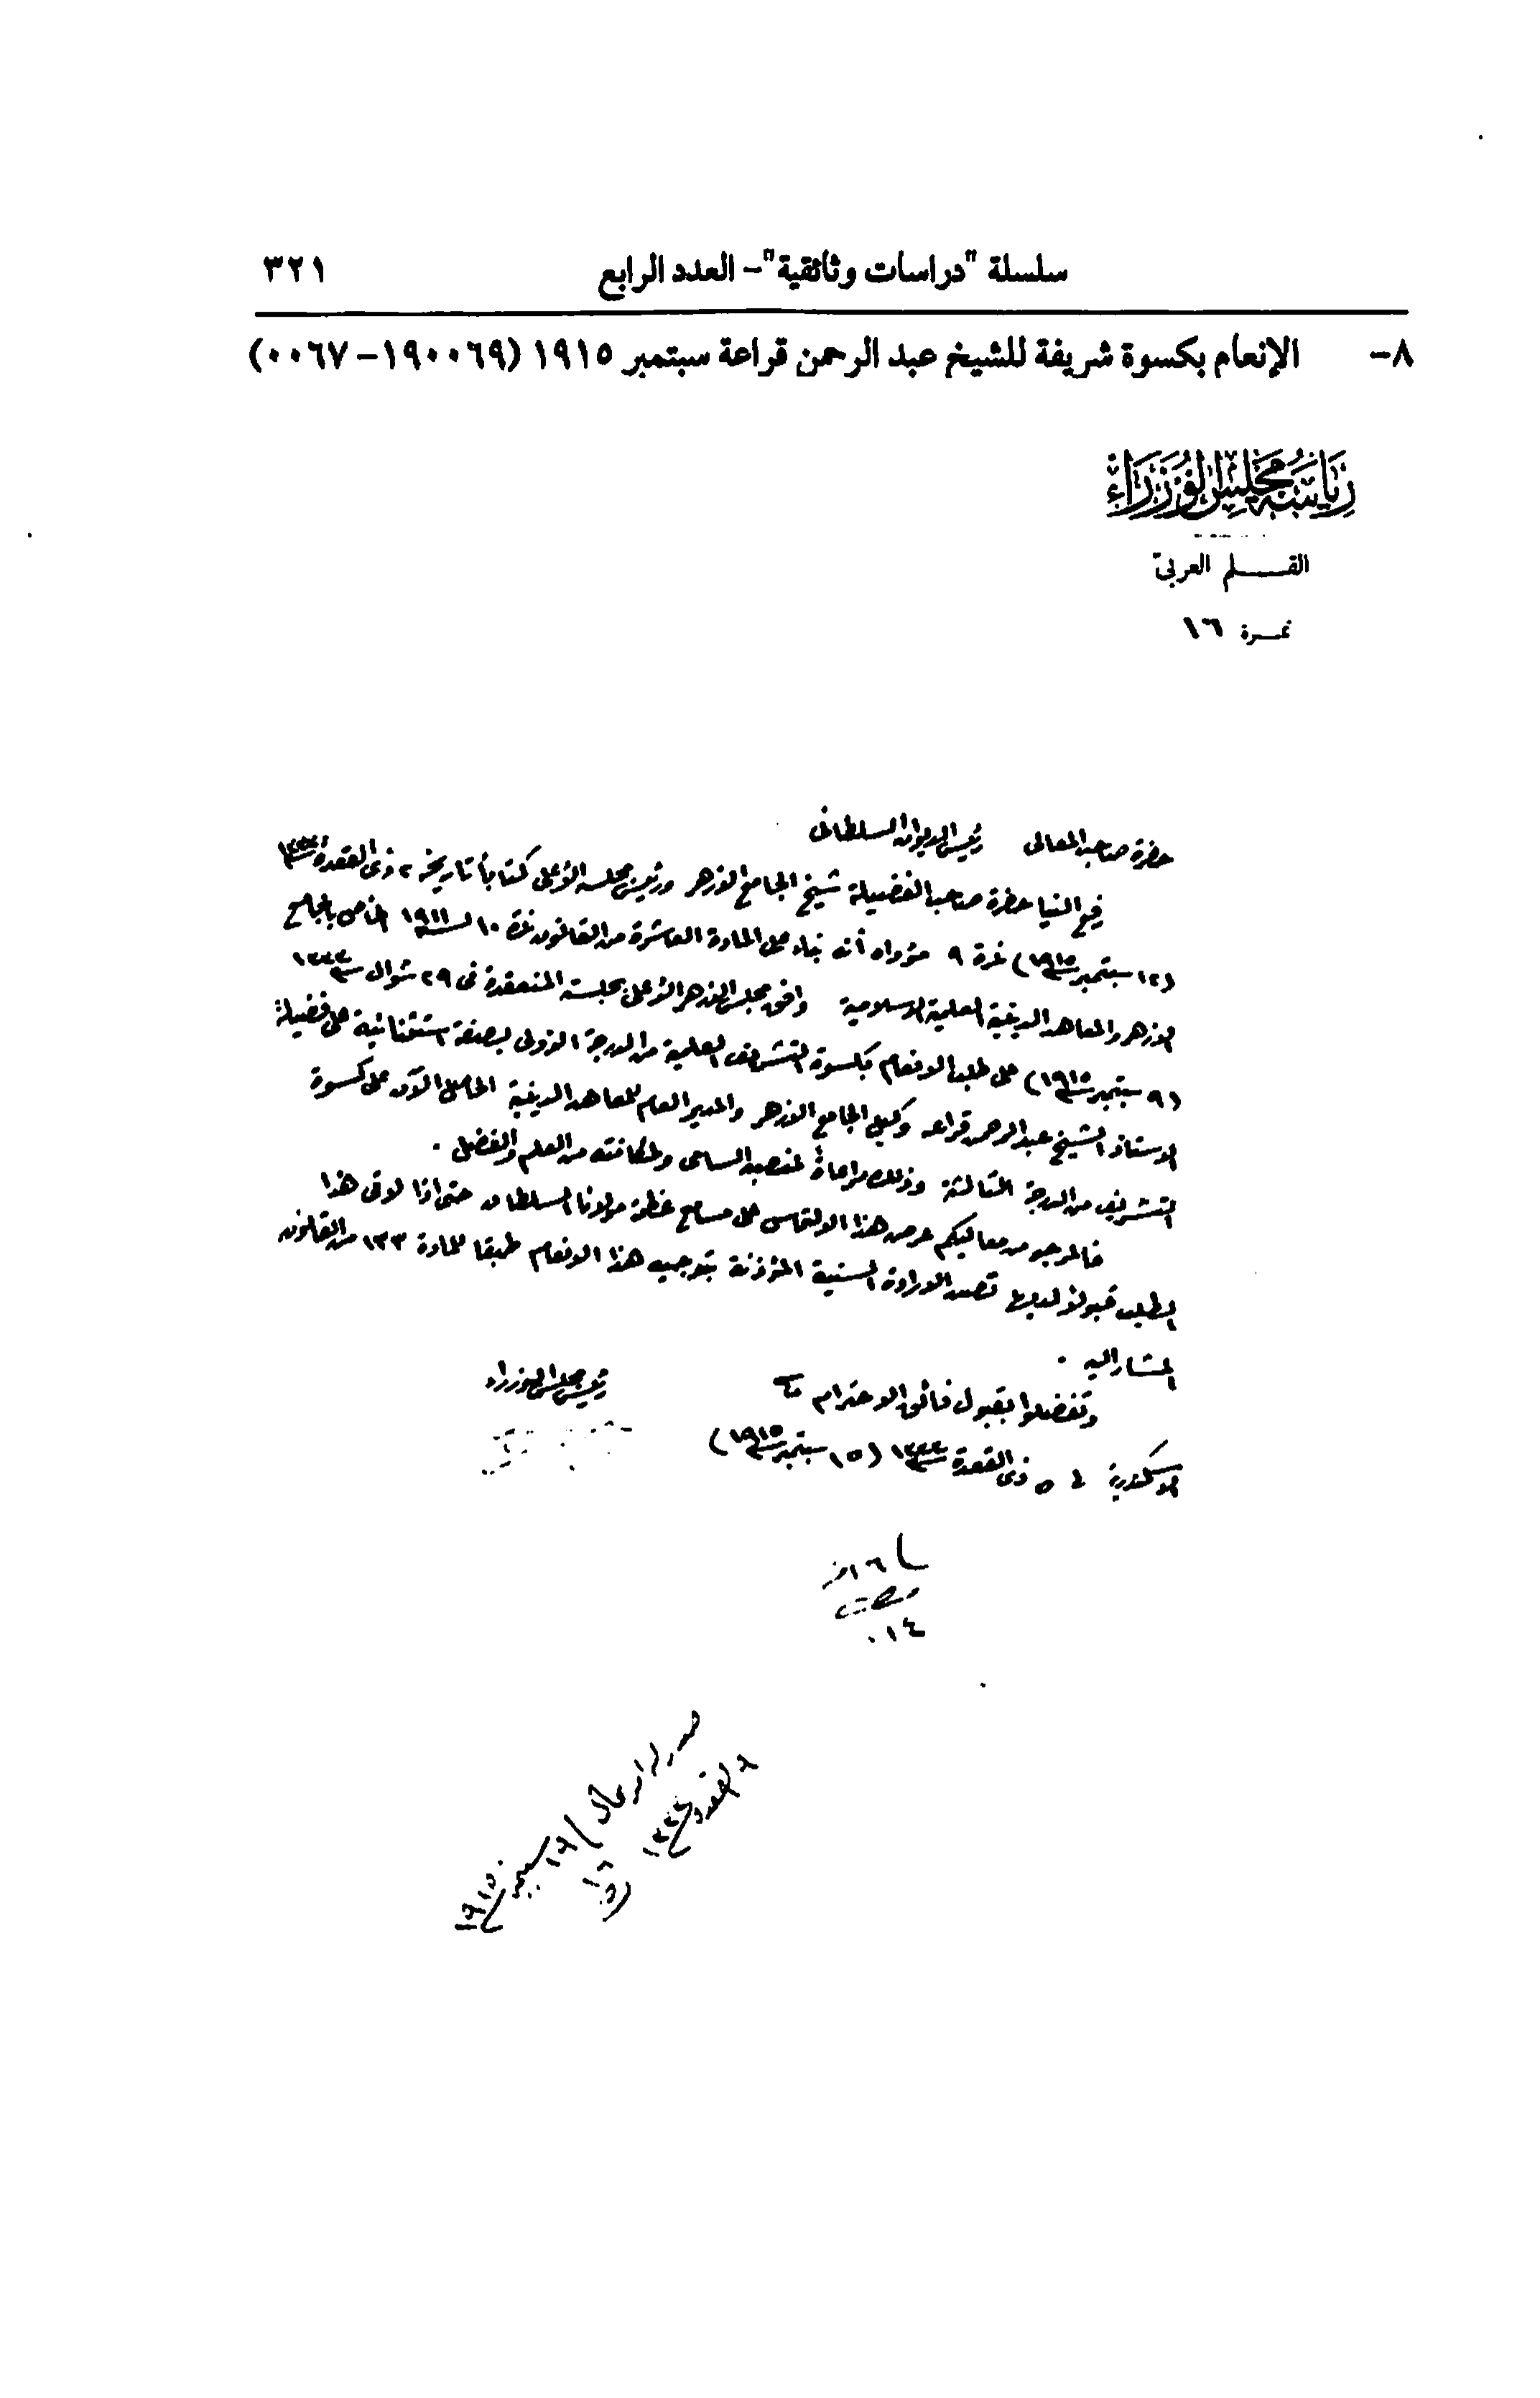 سلسلة "دراسات وثائقية"- العدد الرابع ٣٢١
٨- الإنعام بكسوة شريفة للشيخ عبد الرحمن قراعة سبتمبر ١٩١٥ (١٩٠٠٦٩-٠٠٦٧)
رياسة مجلس الوزراء
القلم العربى
نمرة ١٦
حضرة صاحب المعالى رئيس الديوان السلطانى
رفع الينا حضرة صاحب الفضيلة شيخ الجامع الازهر ورئيس مجلسه الأعلى كتاباً تاريخه ٢ ذى القعدة سنة ١٣٣٣
(١٢ سبتمبر سنة ١٩١٥) نمرة ٩ مؤداه أنه بناء على المادة العاشرة من القانون نمرة ١٠ لسنة ١٩١١ الخاص بالجامع
الازهر والمعاهد الدينية العلمية الاسلامية وافق مجلس الازهر الأعلى بجلسته المنعقدة فى ٢٩ شوال سنة ١٣٣٣
(٩ سبتمبر سنة ١٩١٥) على طلب الانعام بكسوة التشريف العلمية من الدرجة الاولى بصفة استثنائية على فضيلة
الاستاذ الشيخ عبد الرحمن قراعه وكيل الجامع الازهر والمدير العام للمعاهد الدينية الحاصل الآن على كسوة
التشريف من الدرجة الثالثة وذلك مراعاة لمنصبه السامى ولمكانته من العلم والفضل .
فالمرجو من معاليكم عرض هذا الالتماس على مسامع عظمة مولانا السلطان حتى اذا لاقى هذا
الطلب قبولا لديها تصدر الارادة السنية المؤذنة بتوجيه هذا الانعام طبقا للمادة ١٣٣ من القانون
المشار اليه .
وتفضلوا بقبول فائق الاحترام
رئيس مجلس الوزراء
الاسكندرية فى ٥ ذى القعدة سنة ١٣٣٣ (١٥ سبتمبر سنة ١٩١٥)
٠١٤
٦ القعدة سنة ١٣٣٣
١٦ سبتمبر سنة ١٩١٥